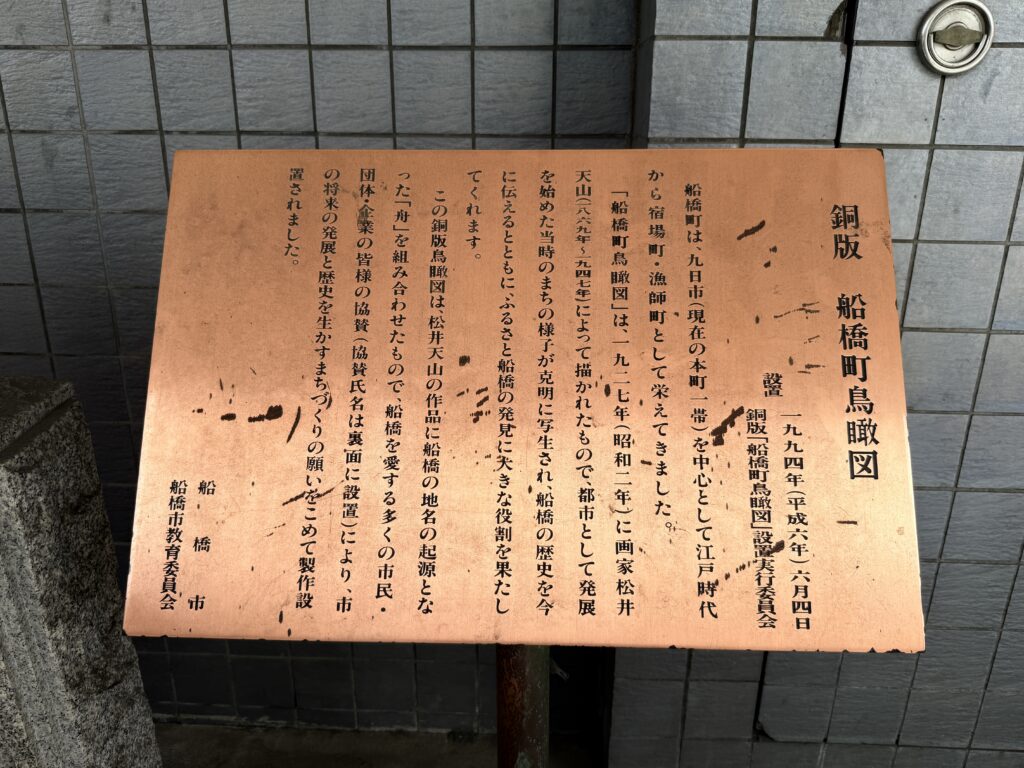 銅版　船橋町鳥瞰図
設置　一九九四年(平成六年)六月四日
銅版「船橋町鳥瞰図」設置実行委員会
船橋町は、九日市(現在の本町一帯)を中心として江戸時代
から宿場町・漁師町として栄えてきました。
「船橋町鳥瞰図」は、一九二七年(昭和二年)に画家松井
天山(一八六九年〜一九四七年)によって描かれたもので、都市として発展
を始めた当時のまちの様子が克明に写生され、船橋の歴史を今
に伝えるとともに、ふるさと船橋の発見に大きな役割を果たし
てくれます。
この銅版鳥瞰図は、松井天山の作品に船橋の地名の起源とな
った「舟」を組み合わせたもので、船橋を愛する多くの市民・
団体・企業の皆様の協賛(協賛氏名は裏面に設置)により、市
の将来の発展と歴史を生かすまちづくりの願いをこめて製作設
置されました。
船橋市
船橋市教育委員会